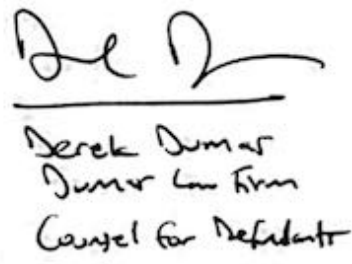 Derek Dumar
Dumar Law Firm
Counsel for Defendants